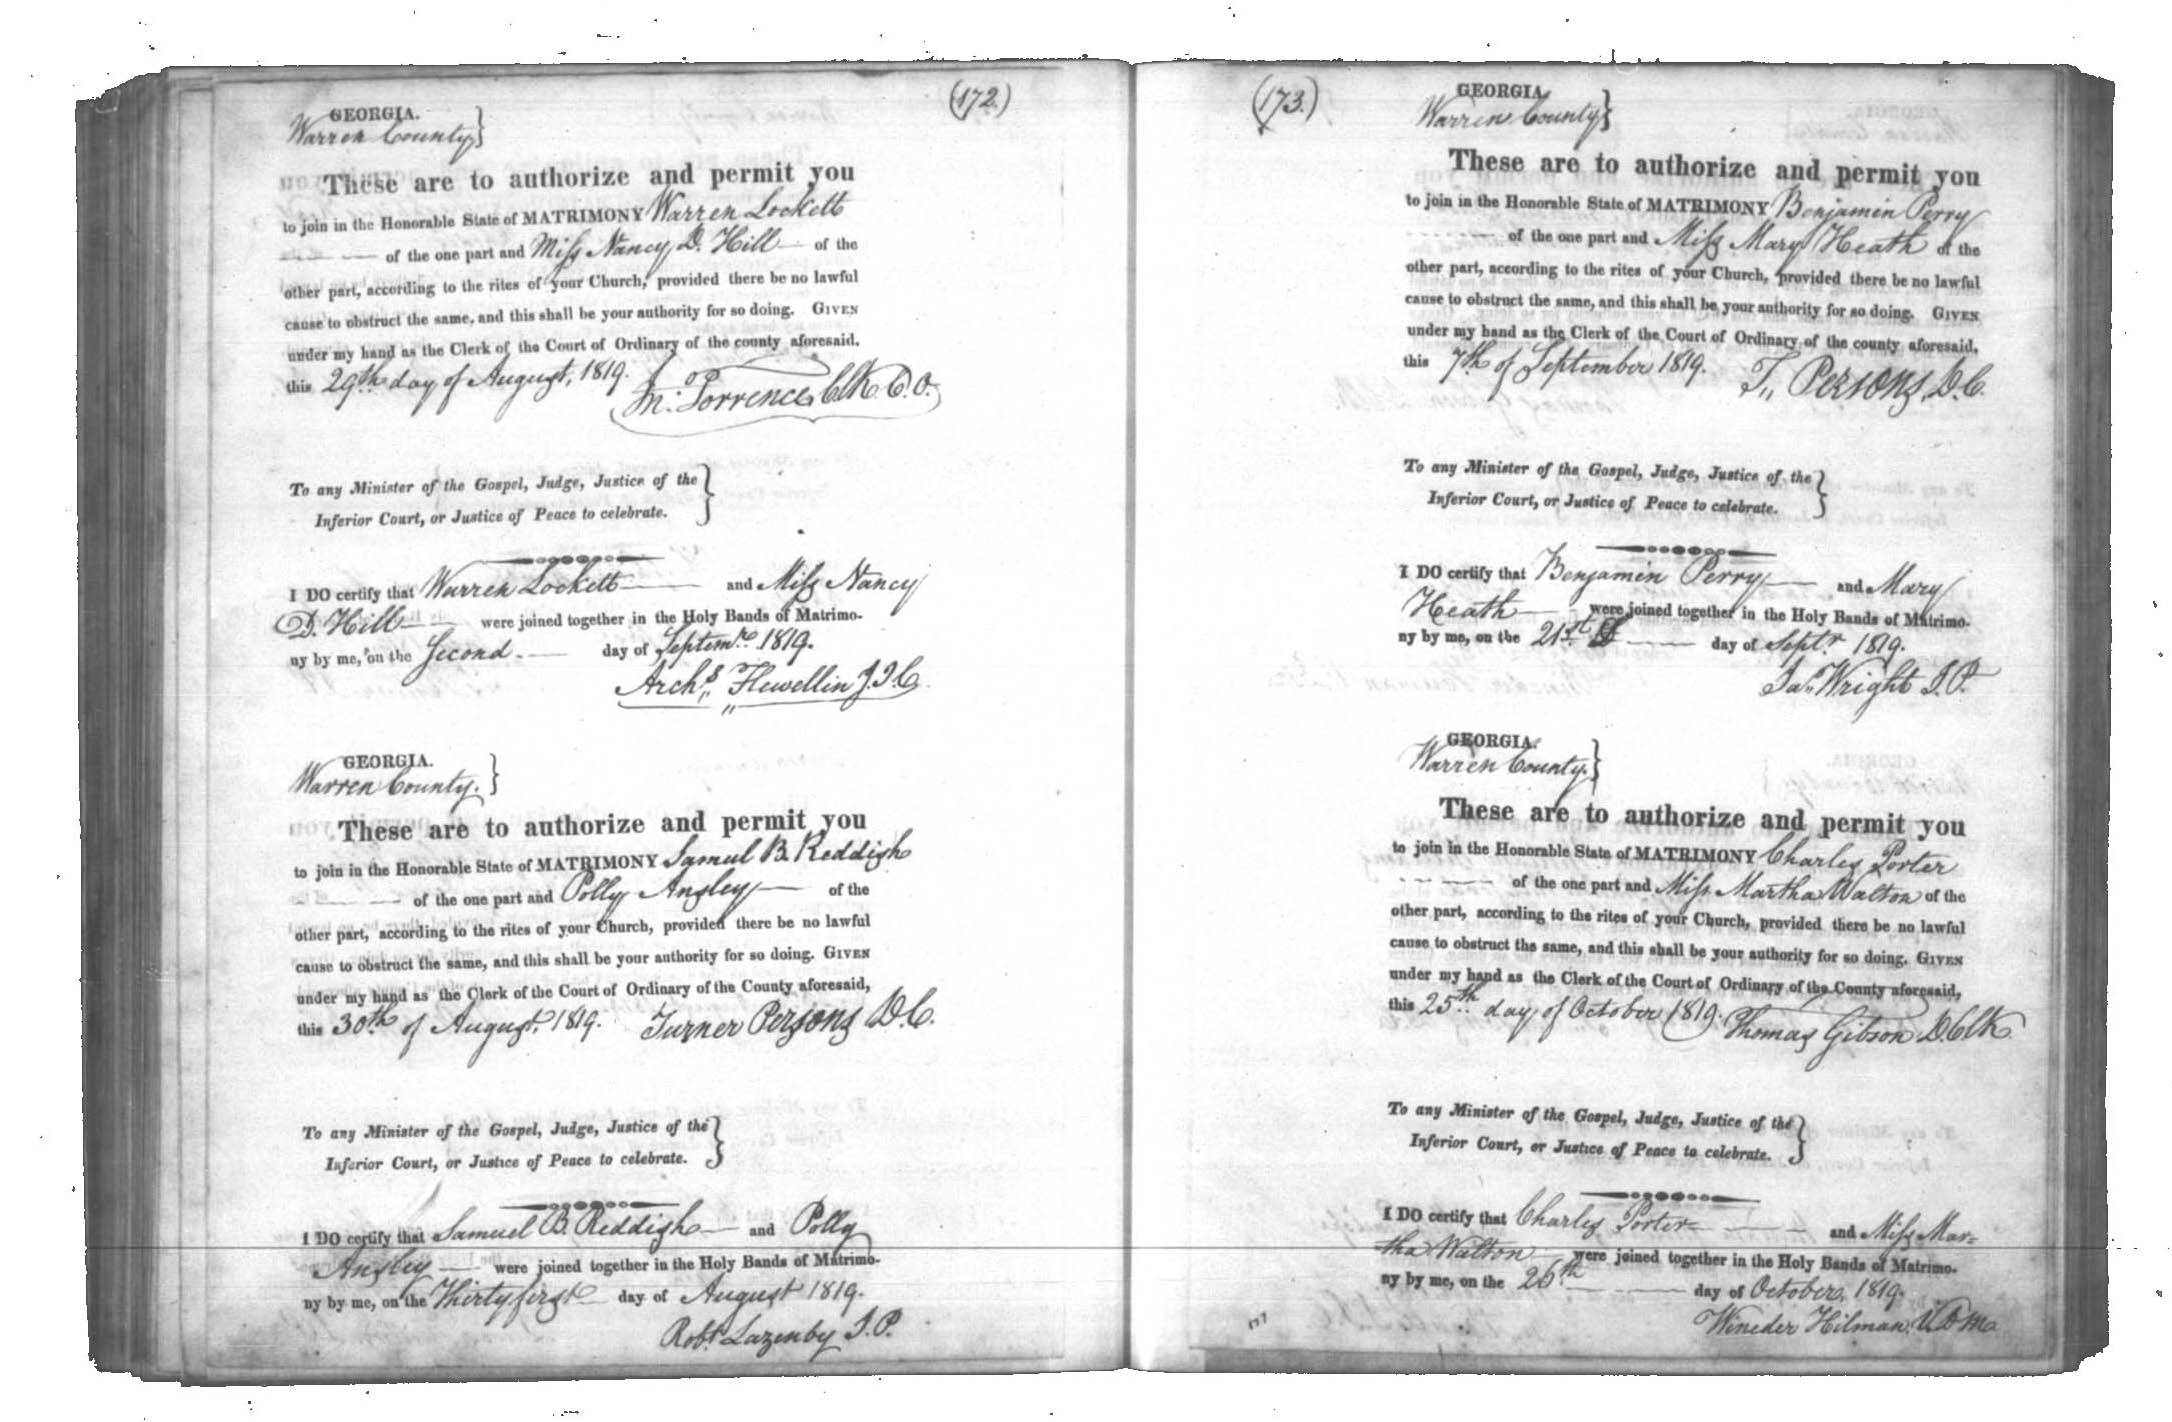 (172.)
GEORGIA.
Warren County}
These are to authorize and permit you
to join in the Honorable State of MATRIMONY Warren Lockett
of the one part and Miss Nancy D. Hill — of the
other part, according to the rites of your Church, provided there be no lawful
cause to obstruct the same, and this shall be your authority for so doing. GIVEN
under my hand as the Clerk of the Court of Ordinary of the county aforesaid,
this 29th day of August, 1819.
M. Torrence, Clk C. O.
To any Minister of the Gospel, Judge, Justice of the }
Inferior Court, or Justice of Peace to celebrate.
I DO certify that Warren Lockett — and Miss Nancy
D. Hill — were joined together in the Holy Bands of Matrimo-
ny by me, on the Second — day of Septem.re 1819.
Archs Flewellin J.I.C.
GEORGIA.
Warren County. }
These are to authorize and permit you
to join in the Honorable State of MATRIMONY Samul B. Reddish
of the one part and Polly Ansley — of the
other part, according to the rites of your Church, provided there be no lawful
cause to obstruct the same, and this shall be your authority for so doing. GIVEN
under my hand as the Clerk of the Court of Ordinary of the County aforesaid,
this 30th of August, 1819. Turner Persons D.C.
To any Minister of the Gospel, Judge, Justice of the }
Inferior Court, or Justice of Peace to celebrate.
I DO certify that Samuel B. Reddish — and Polly
Ansley — were joined together in the Holy Bands of Matrimo-
ny by me, on the Thirty first — day of August 1819.
Robt. Lazenby J.P.
(173.)
GEORGIA.
Warren County}
These are to authorize and permit you
to join in the Honorable State of MATRIMONY Benjamin Perry
of the one part and Miss Mary Heath of the
other part, according to the rites of your Church, provided there be no lawful
cause to obstruct the same, and this shall be your authority for so doing. GIVEN
under my hand as the Clerk of the Court of Ordinary of the county aforesaid,
this 7th of September 1819. T,, Persons, D.C.
To any Minister of the Gospel, Judge, Justice of the }
Inferior Court, or Justice of Peace to celebrate.
I DO certify that Benjamin Perry — and Mary
Heath — were joined together in the Holy Bands of Matrimo-
ny by me, on the 21st — day of Septr 1819.
Jas. Wright J.P.
GEORGIA.
Warren County.}
These are to authorize and permit you
to join in the Honorable State of MATRIMONY Charles Porter
of the one part and Miss Martha Walton of the
other part, according to the rites of your Church, provided there be no lawful
cause to obstruct the same, and this shall be your authority for so doing. GIVEN
under my hand as the Clerk of the Court of Ordinary of the County aforesaid,
this 25th day of October 1819. Thomas Gibson D.Clk
To any Minister of the Gospel, Judge, Justice of the }
Inferior Court, or Justice of Peace to celebrate.
I DO certify that Charles Porter — and Miss Mar=
tha Walton — were joined together in the Holy Bands of Matrimo-
ny by me, on the 26th — day of October, 1819.
Wineder Hilman, V.D.M.